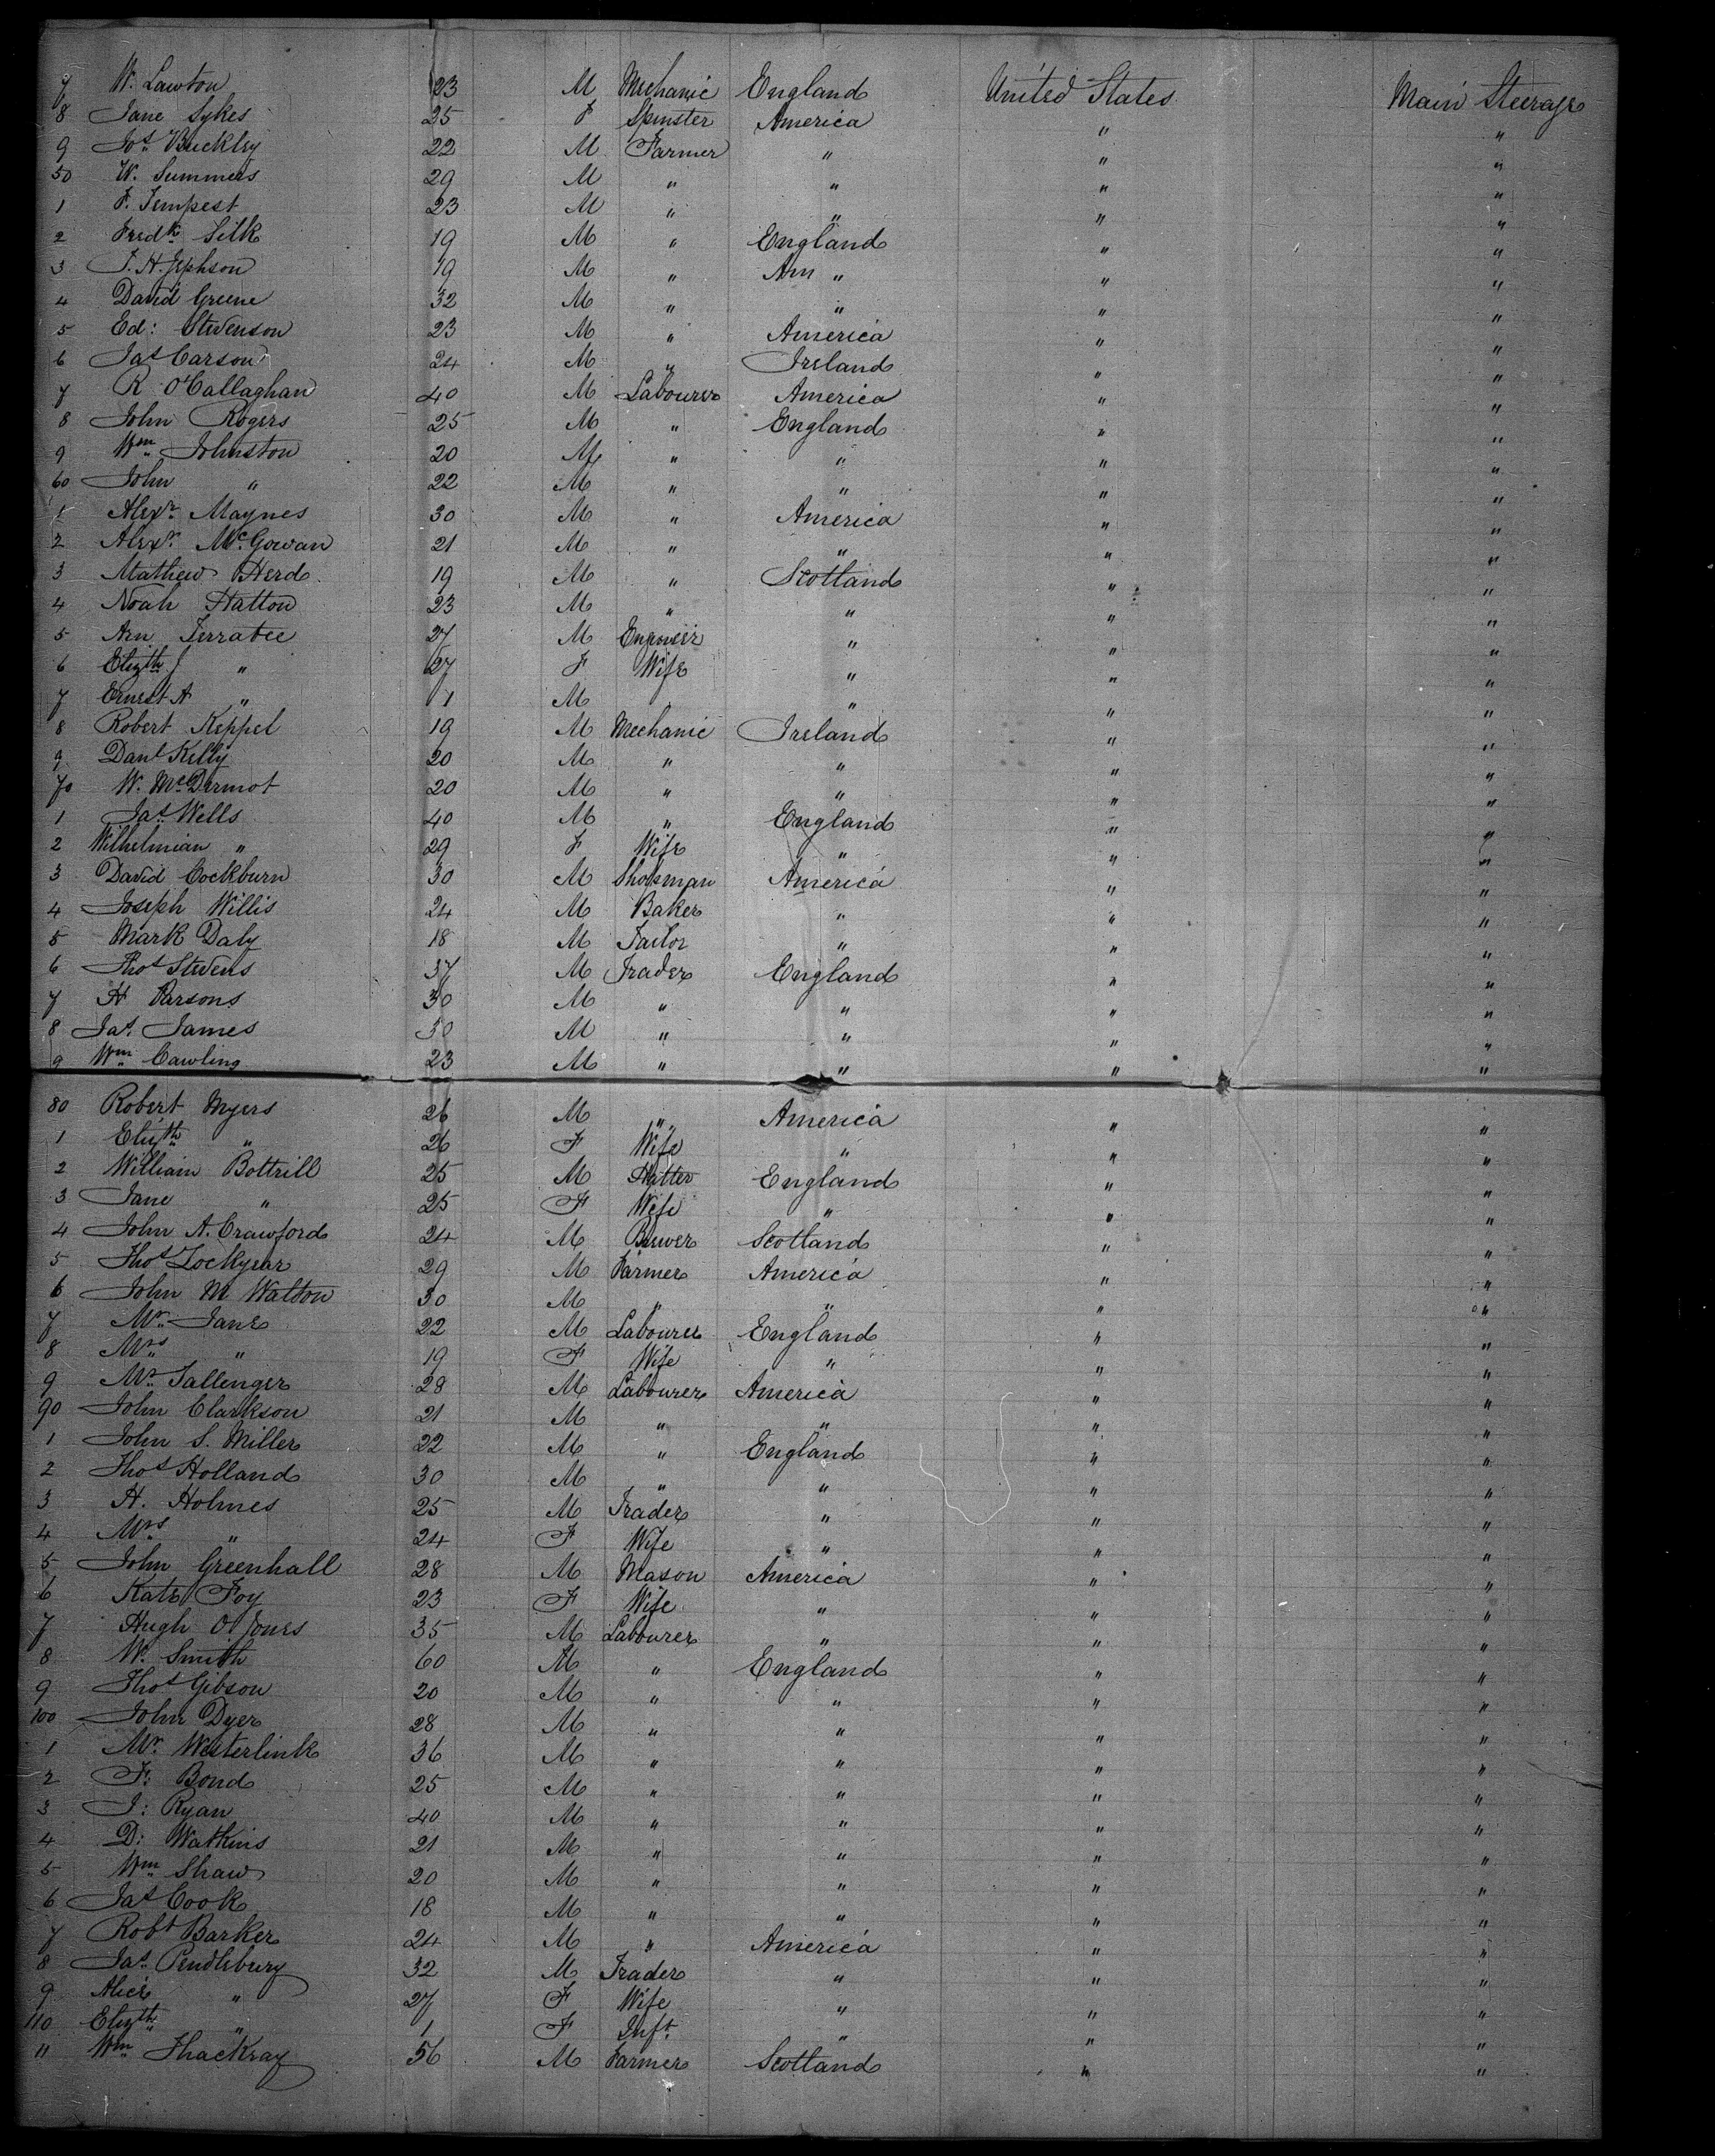 7 W. Lawton 23 M Mechanic England United States Main Steerage
8 Jane Sykes 25 F Spinster America " "
9 Jos. Buckley 22 M Farmer " " "
50 W. Summers 29 M " " " "
1 F. Tempest 23 M " " " "
2 Fredk. Silk 19 M " England " "
3 J. H. Jephson 19 M " Am " " "
4 David Greene 32 M " " " "
5 Ed: Stevenson 23 M " America " "
6 Jas Carson 24 M " Ireland " "
7 R O'Callaghan 40 M Labourer America " "
8 John Rogers 25 M " England " "
9 Wm. Johnston 20 M " " " "
60 John " 22 M " " " "
1 Alexr. Maynes 30 M " America " "
2 Alexr. McGowan 21 M " " " "
3 Mathew Herd 19 M " Scotland " "
4 Noah Hatton 23 M " " " "
5 Arn Terratee 27 M Engineer " " "
6 Elizth J " 27 F Wife " " "
7 Ernest A " 1 M " " "
8 Robert Keppel 19 M Mechanic Ireland " "
9 Danl Kelly 20 M " " " "
70 W. McDermot 20 M " " " "
1 Jas. Wells 40 M " England " "
2 Wilhelmian " 29 F Wife " " "
3 David Cockburn 30 M Shopman America " "
4 Joseph Willis 24 M Baker " " "
5 Mark Daly 18 M Tailor " " "
6 Thos Stevens 37 M Trader England " "
7 H Parsons 30 M " " " "
8 Jas. James 30 M " " " "
9 Wm. Cawling 23 M " " " "
80 Robert Myers 26 M " America " "
1 Elizth " 26 F Wife " " "
2 William Bottrill 25 M Hatter England " "
3 Jane " 25 F Wife " " "
4 John A. Crawford 24 M Brewer Scotland " "
5 Thos Lockyear 29 M Farmer America " "
6 John M Watson 30 M " " " "
7 Mr. Jane 22 M Labourer England " "
8 Mrs " 19 F Wife " " "
9 Mr. Tallenger 28 M Labourer America " "
90 John Clarkson 21 M " " " "
1 John S. Miller 22 M " England " "
2 Thos Holland 30 M " " " "
3 H. Holmes 25 M Trader " " "
4 Mrs " 24 F Wife " " "
5 John Greenhall 28 M Mason America " "
6 Kate Foy 23 F Wife " " "
7 Hugh O Jones 35 M Labourer " " "
8 W. Smith 60 M " England " "
9 Thos Gibson 20 M " " " "
100 John Dyer 28 M " " " "
1 Mr. Westerlink 36 M " " " "
2 F: Bond 25 M " " " "
3 J: Ryan 40 M " " " "
4 D: Watkins 21 M " " " "
5 Wm Shaw 20 M " " " "
6 Jas Cook 18 M " " " "
7 Robt Barker 24 M " America " "
8 Jas. Pendlebury 32 M Trader " " "
9 Alice " 27 F Wife " " "
110 Elizth " 1 F Inft. " " "
11 Wm Thackray 56 M Farmer Scotland " "